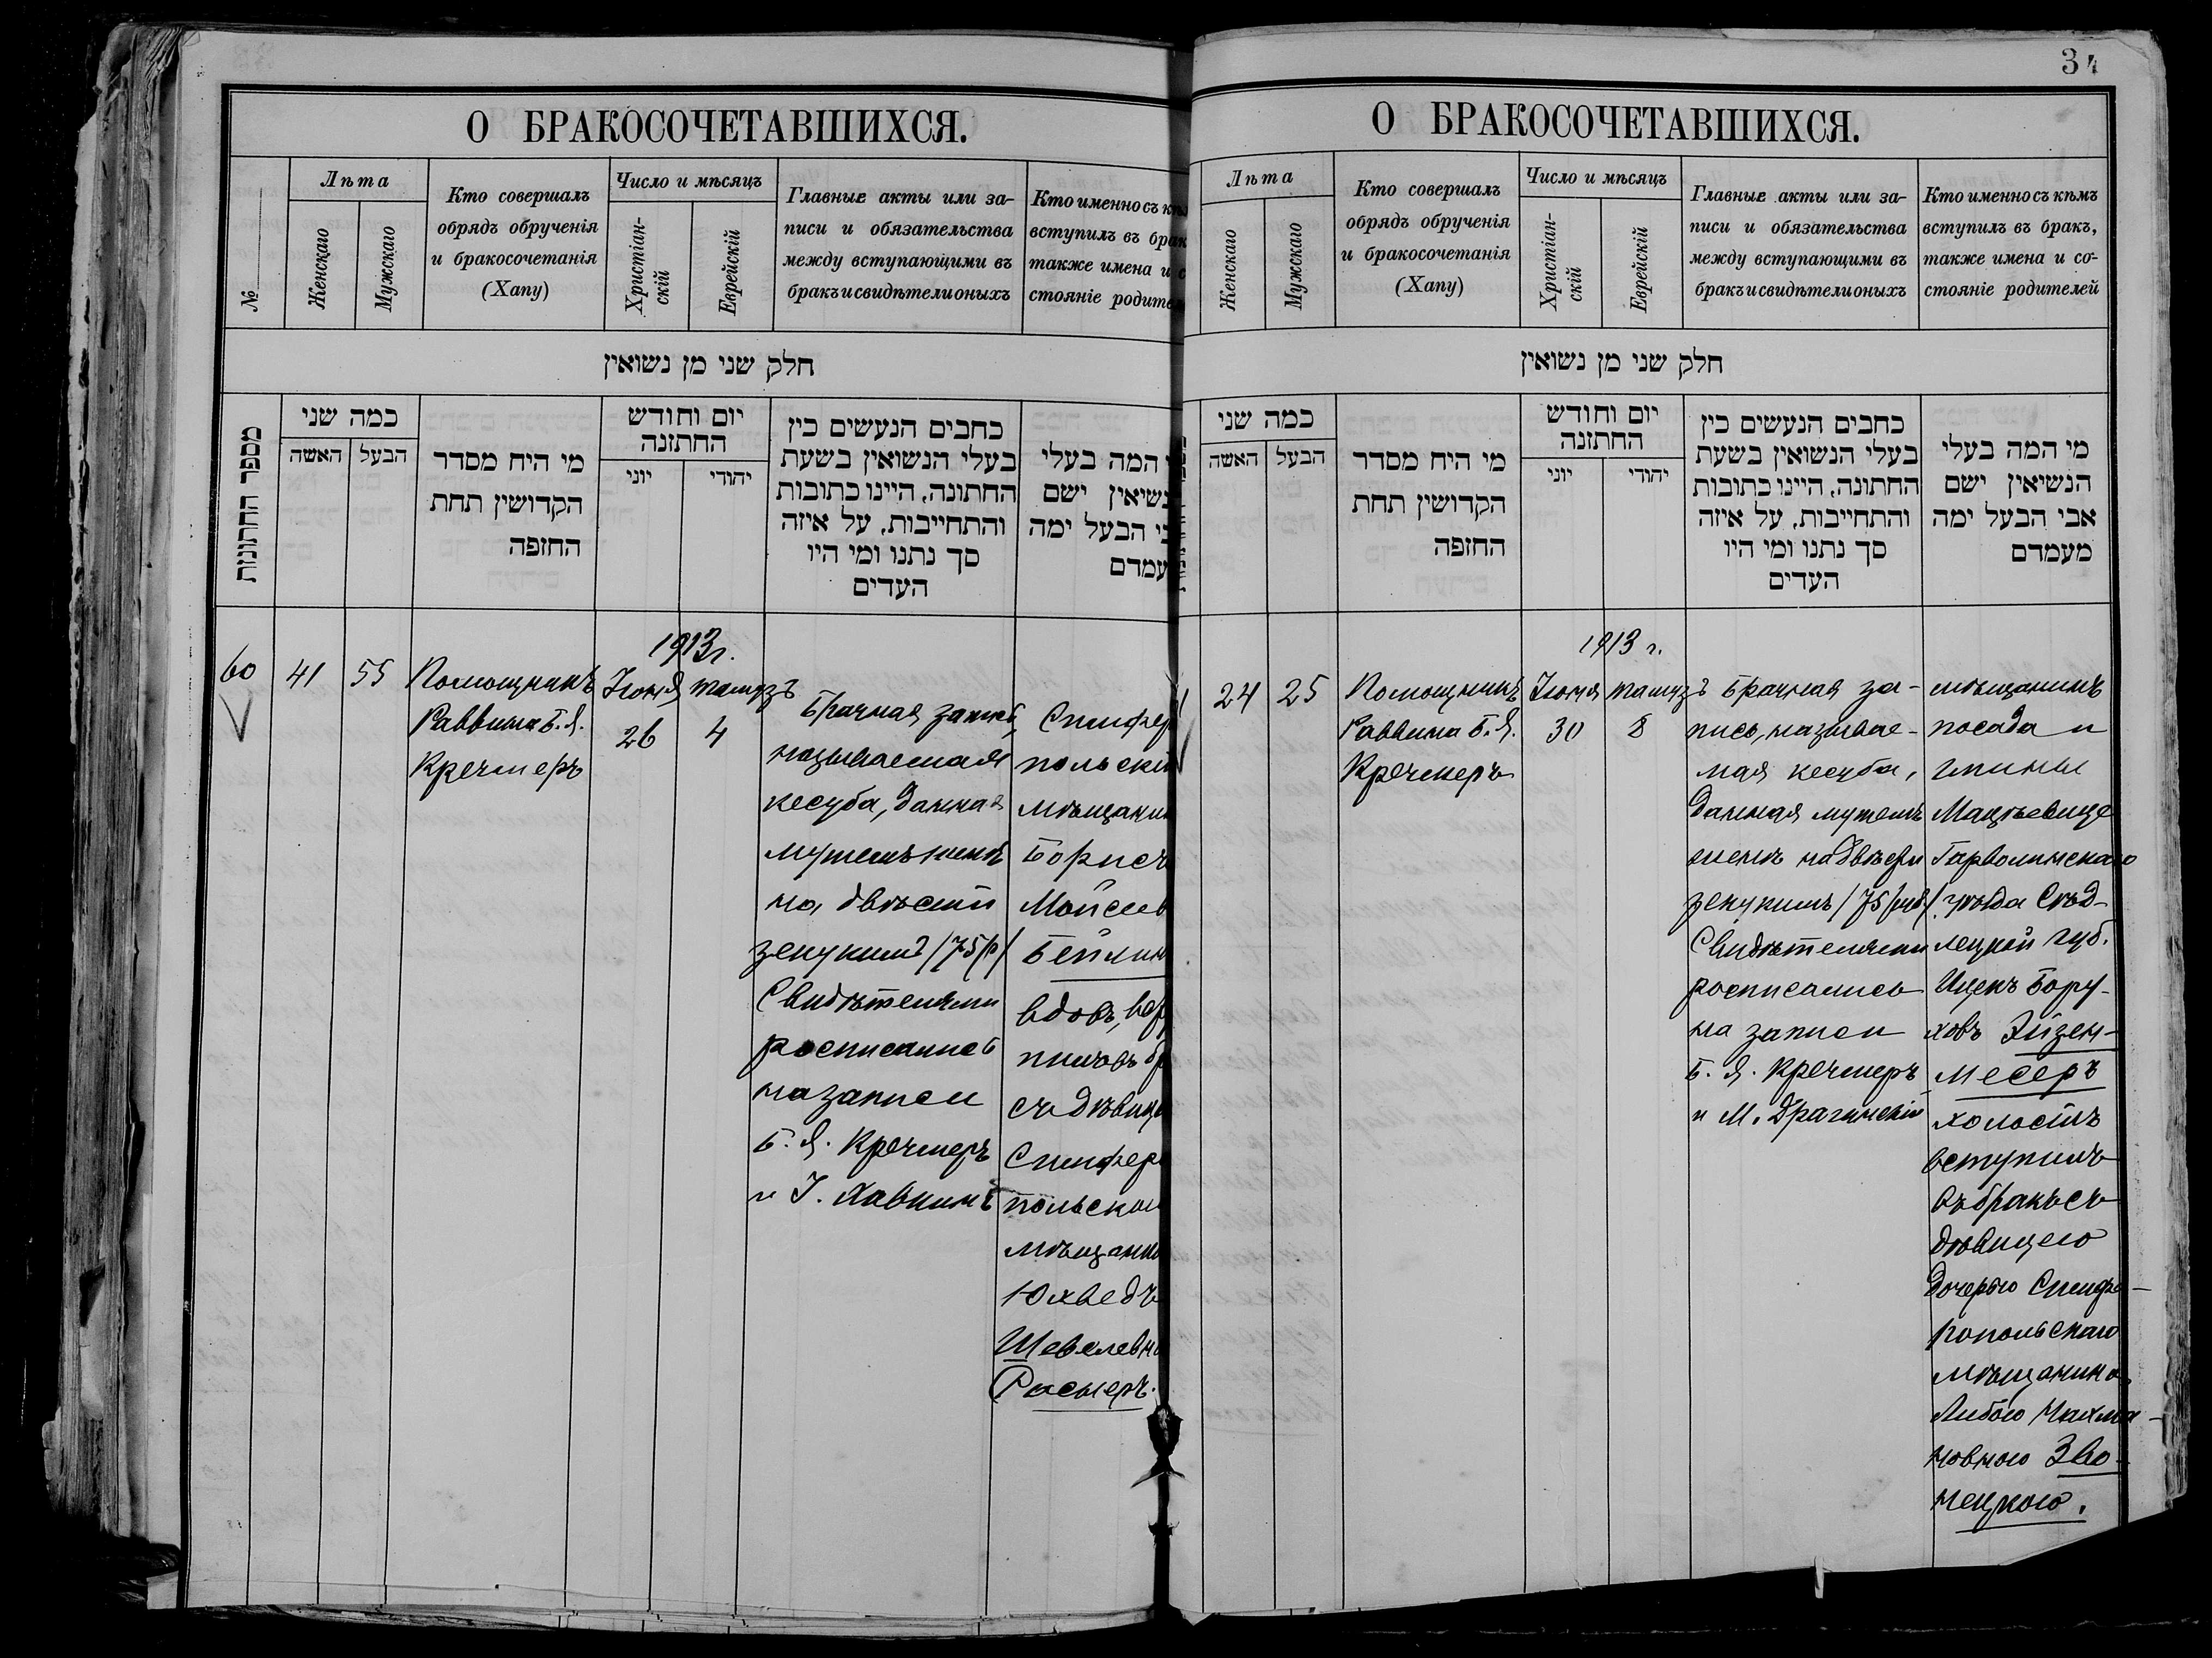 О БРАКОСОЧЕТАВШИХСЯ.
№
Лѣта
Женскаго
Мужскаго
Кто совершалъ
обрядъ обрученія
и бракосочетанія
(Хапу)
Число и мѣсяцъ
Христіан-
скій
Еврейскій
Главные акты или за-
писи и обязательства
между вступающими въ
бракъ и свидѣтели оныхъ
Кто именно съ
вступилъ въ брак
также имена и с
стояніе родител
חלק שני מן נשואין
מספר החתונות
כמה שני
האשה
הבעל
מי היח מסדר
הקדושין תחת
החזפה
יום וחודש
החתזנה
יוני
יהודי
כחבים הנעשים כין
בעלי הנשואין בשעת
החתונה, היינו כתובות
והתחייבות, על איזה
סך נתנו ומי היו
העדים
המה בעלי
נשיאין ישם
בי הבעל ימה
עמדם
1913 г.
60
41
55
Помощникъ
Раввина Б. Я.
Кречмеръ
Іюня
26
тамузъ
4
Брачная запись,
называемая
кесуба, данная
мужемъ женѣ
на двѣсти
зекукимъ /75 р/
Свидѣтелями
росписались
на записи
Б. Я. Кречмеръ
и І. Хавкинъ
Симферо
польскій
мѣщанин
Борисъ
Мойсеев
Бейлин
вдовъ,
пилъ въ бр
съ дѣвице
Симферо
польской
мѣщанко
Юхведъ
Шевелевно
Расмеръ.
34
О БРАКОСОЧЕТАВШИХСЯ.
Лѣта
Женскаго
Мужскаго
Кто совершалъ
обрядъ обрученія
и бракосочетанія
(Хапу)
Число и мѣсяцъ
Христіан-
скій
Еврейскій
Главные акты или за-
писи и обязательства
между вступающими въ
бракъ и свидѣтели оныхъ
Кто именно съ кѣмъ
вступилъ въ бракъ,
также имена и со-
стояніе родителей
חלק שני מן נשואין
כמה שני
האשה
הבעל
מי היח מסדר
הקדושין תחת
החזפה
יום וחודש
החתזנה
יוני
יהודי
כחבים הנעשים כין
בעלי הנשואין בשעת
החתונה, היינו כתובות
והתחייבות, על איזה
סך נתנו ומי היו
העדים
מי המה בעלי
הנשיאין ישם
אבי הבעל ימה
מעמדם
1913 г.
24
25
Помощникъ
Раввина Б. Я.
Кречмеръ
Іюня
30
тамузъ
8
Брачная за-
пись, называе-
мая кесуба,
данная мужемъ
женѣ на двѣсти
зекукимъ /75 руб/
Свидѣтелями
росписались
на записи
Б. Я. Кречмеръ
и М. Драгинскій
мѣщанинъ
посада и
гмины
Мацѣевице
Гарволинскаго
уѣзда Сѣд-
лецкой губ.
Ицекъ Бору-
ховъ Эйзен-
месеръ
холостъ
вступилъ
въ бракъ съ
дѣвицею
дочерью Симфе-
ропольскаго
мѣщанина
Либою Нахма-
новною Зво-
нецкою.